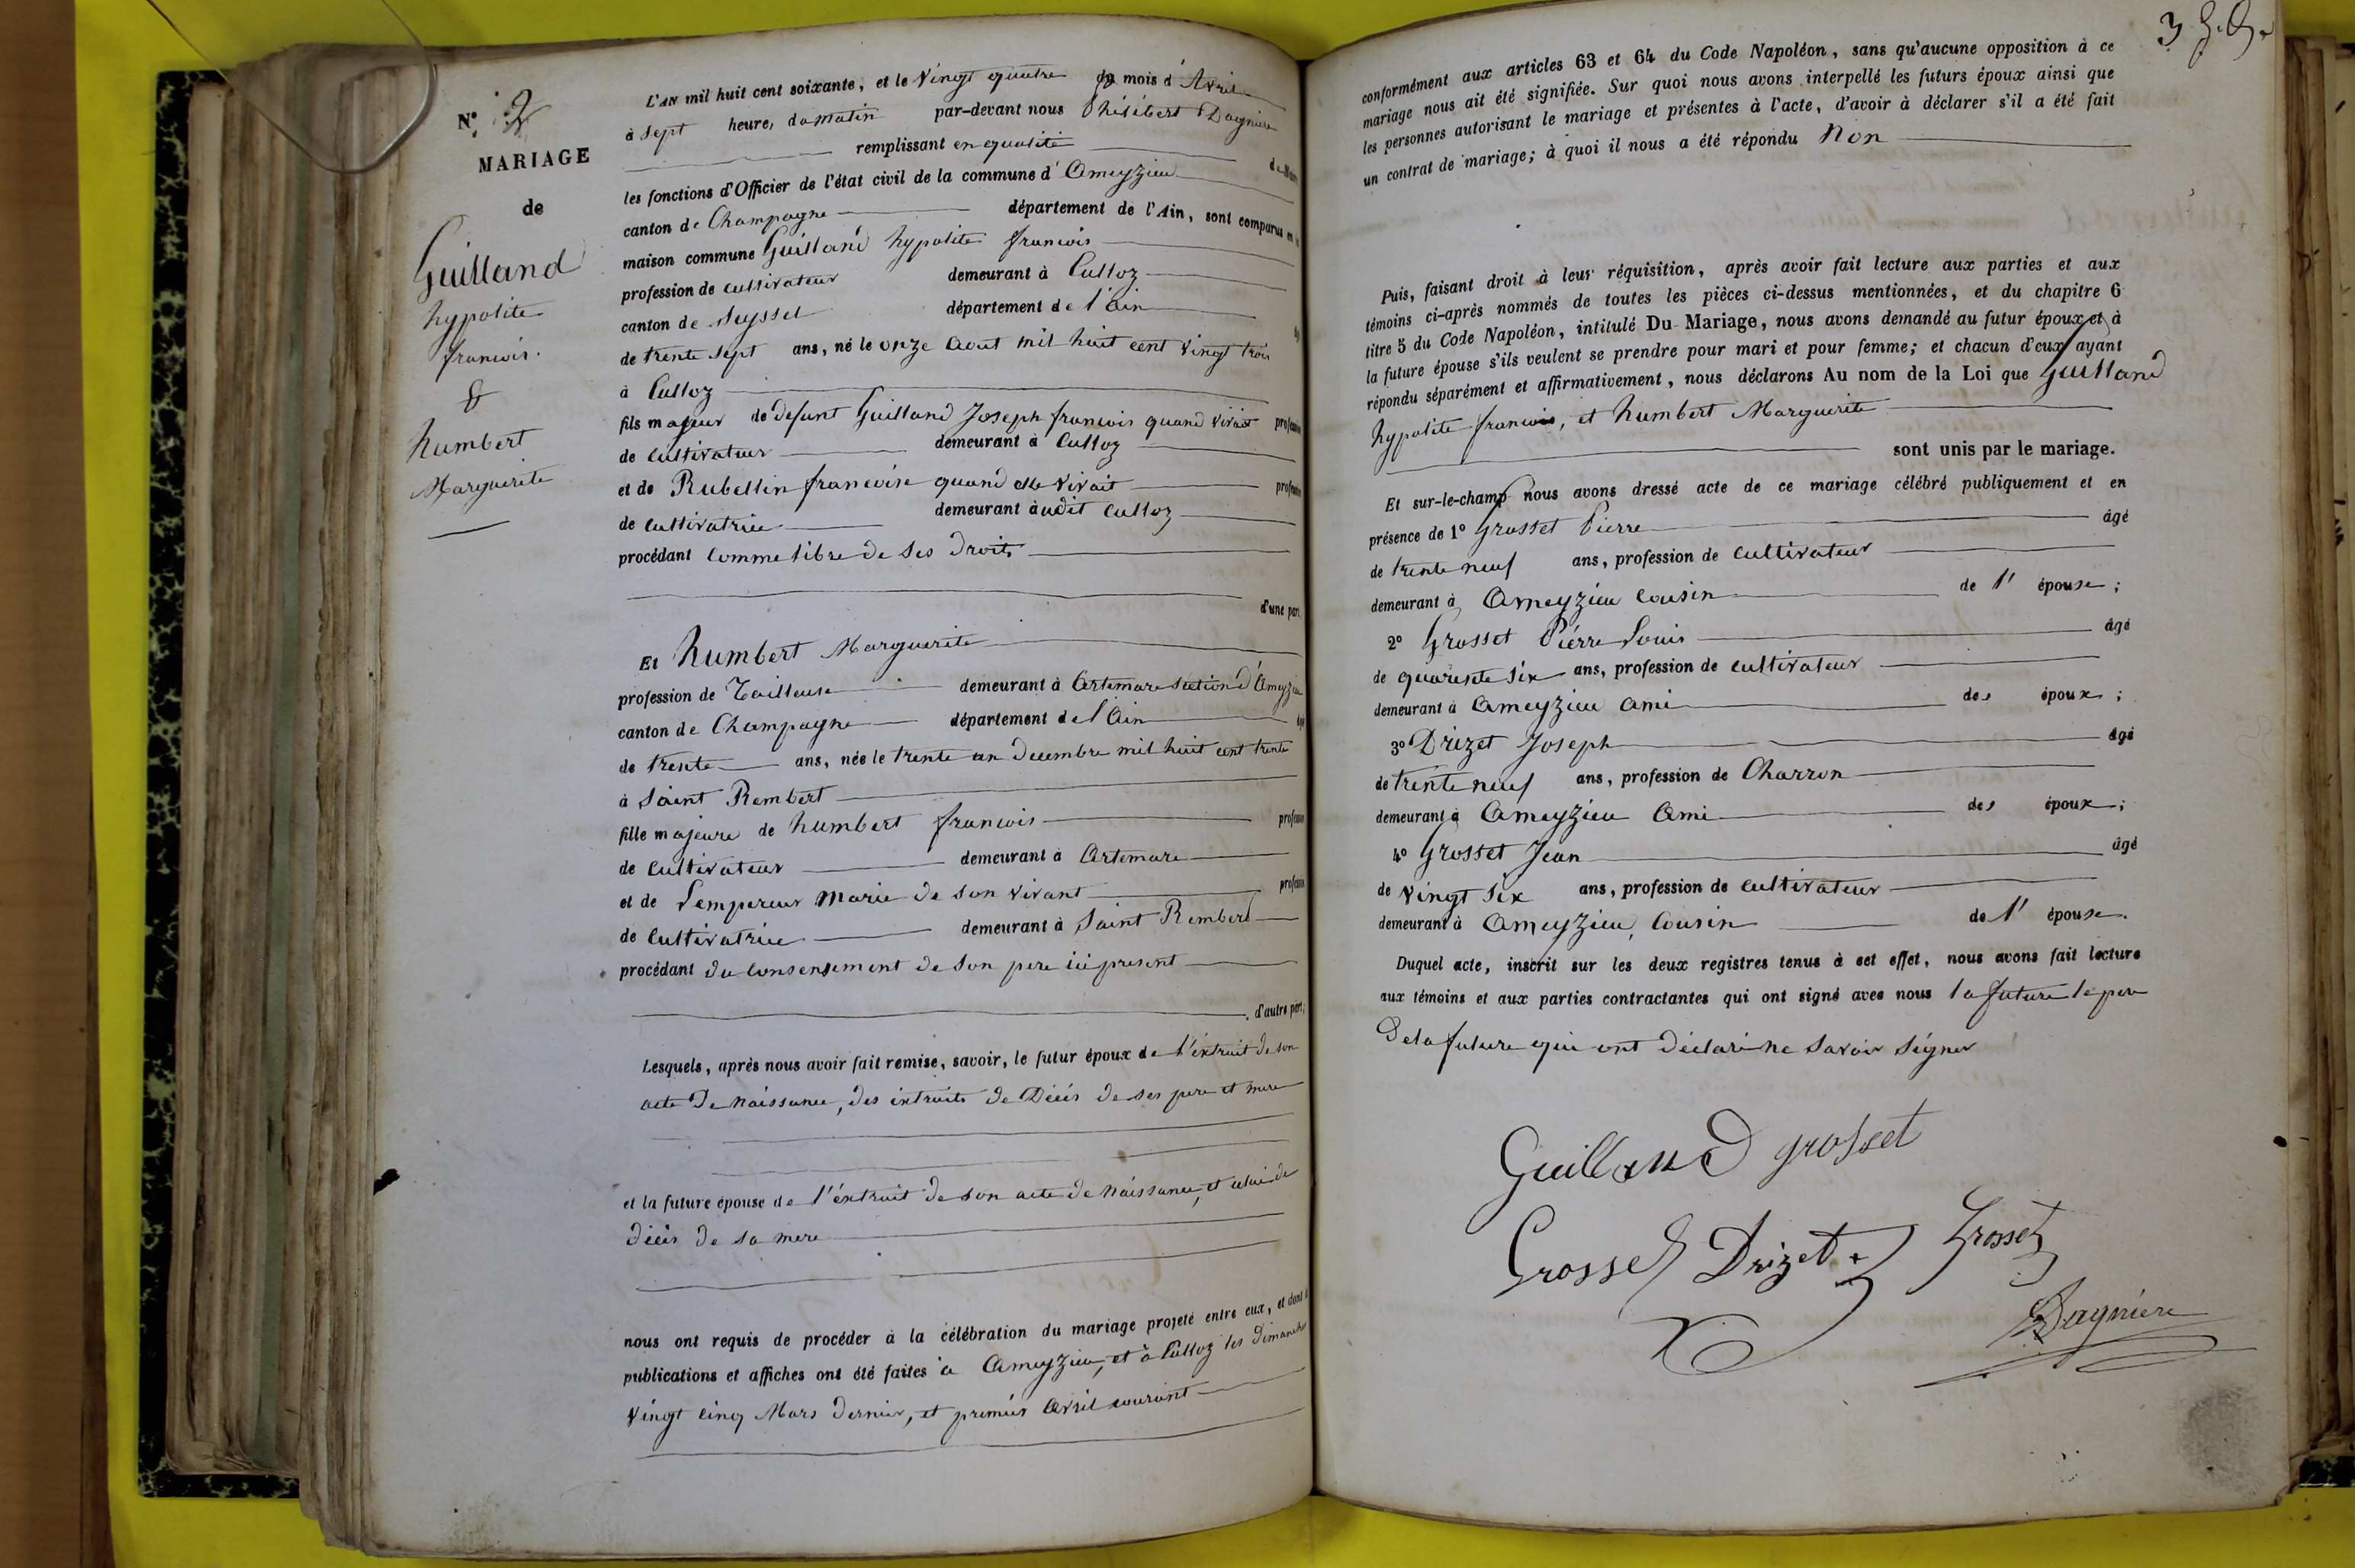 N° 2
MARIAGE
de
Guilland
hypolite
francois.
&
humbert
Marguerite
L'AN mil huit cent soixante, et le vingt quatre du mois d'Avril
à sept heure, du matin par-devant nous Philibert Dagniere
remplissant en qualité de Maire
les fonctions d'Officier de l'état civil de la commune d'Ameyzieu
canton de Champagne département de l'Ain, sont comparus en la
maison commune Guilland hypolite francois
profession de cultivateur demeurant à Culloz
canton de Seyssel département de l'Ain
de trente sept ans, né le onze Aout mil huit cent vingt trois
à Culloz
fils majeur de defunt Guilland Joseph francois quand vivait profession
de cultivateur demeurant à Culloz
et de Rubellin francoise quand elle vivait profession
de cultivatrice demeurant audit Culloz
procédant comme libre de ses droits
d'une part
Et humbert Marguerite
profession de Tailleuse demeurant à Artemare section d'Ameyzieu
canton de Champagne département de l'Ain âgé
de trente ans, née le trente un Decembre mil huit cent trente
à Saint Rembert
fille majeure de humbert francois profession
de cultivateur demeurant à Artemare
et de Lempereur Marie de son vivant profession
de cultivatrice demeurant à Saint Rembert
procédant du consensement de son pere ici present
d'autre part;
Lesquels, après nous avoir fait remise, savoir, le futur époux de l'éxtrait de son
acte de naissance, des extraits de Décès de ses pere et mere
et la future épouse de l'éxtrait de son acte de naissance, et celui de
décès de sa mere
nous ont requis de procéder à la célébration du mariage projeté entre eux, et dont les
publications et affiches ont été faites à Ameyzieu, et à Culloz les Dimanches
vingt cinq Mars dernier, et premier Avril courant
3
conformément aux articles 63 et 64 du Code Napoléon, sans qu'aucune opposition à ce
mariage nous ait été signifiée. Sur quoi nous avons interpellé les futurs époux ainsi que
les personnes autorisant le mariage et présentes à l'acte, d'avoir à déclarer s'il a été fait
un contrat de mariage; à quoi il nous a été répondu Non
Puis, faisant droit à leur réquisition, après avoir fait lecture aux parties et aux
témoins ci-après nommés de toutes les pièces ci-dessus mentionnées, et du chapitre 6
titre 5 du Code Napoléon, intitulé Du Mariage, nous avons demandé au futur époux et à
la future épouse s'ils veulent se prendre pour mari et pour femme; et chacun d'eux ayant
répondu séparément et affirmativement, nous déclarons Au nom de la Loi que Guilland
hypolite francois, et humbert Marguerite
sont unis par le mariage.
Et sur-le-champ nous avons dressé acte de ce mariage célébré publiquement et en
présence de 1° Grosset Pierre âgé
de trente neuf ans, profession de cultivateur
demeurant à Ameyzieu cousin de l'épouse;
2° Grosset Pierre Louis âgé
de quarente six ans, profession de cultivateur
demeurant à Ameyzieu ami des époux;
3° Drizet Joseph âgé
de trente neuf ans, profession de Charron
demeurant à Ameyzieu Ami des époux;
4° Grosset Jean âgé
de vingt six ans, profession de cultivateur
demeurant à Ameyzieu, cousin de l'épouse.
Duquel acte, inscrit sur les deux registres tenus à cet effet, nous avons fait lecture
aux témoins et aux parties contractantes qui ont signé avec nous la future le pere
de la future qui ont déclaré ne savoir signer
Guilland grosset
Grosset Drizet Grosset
Dagniere